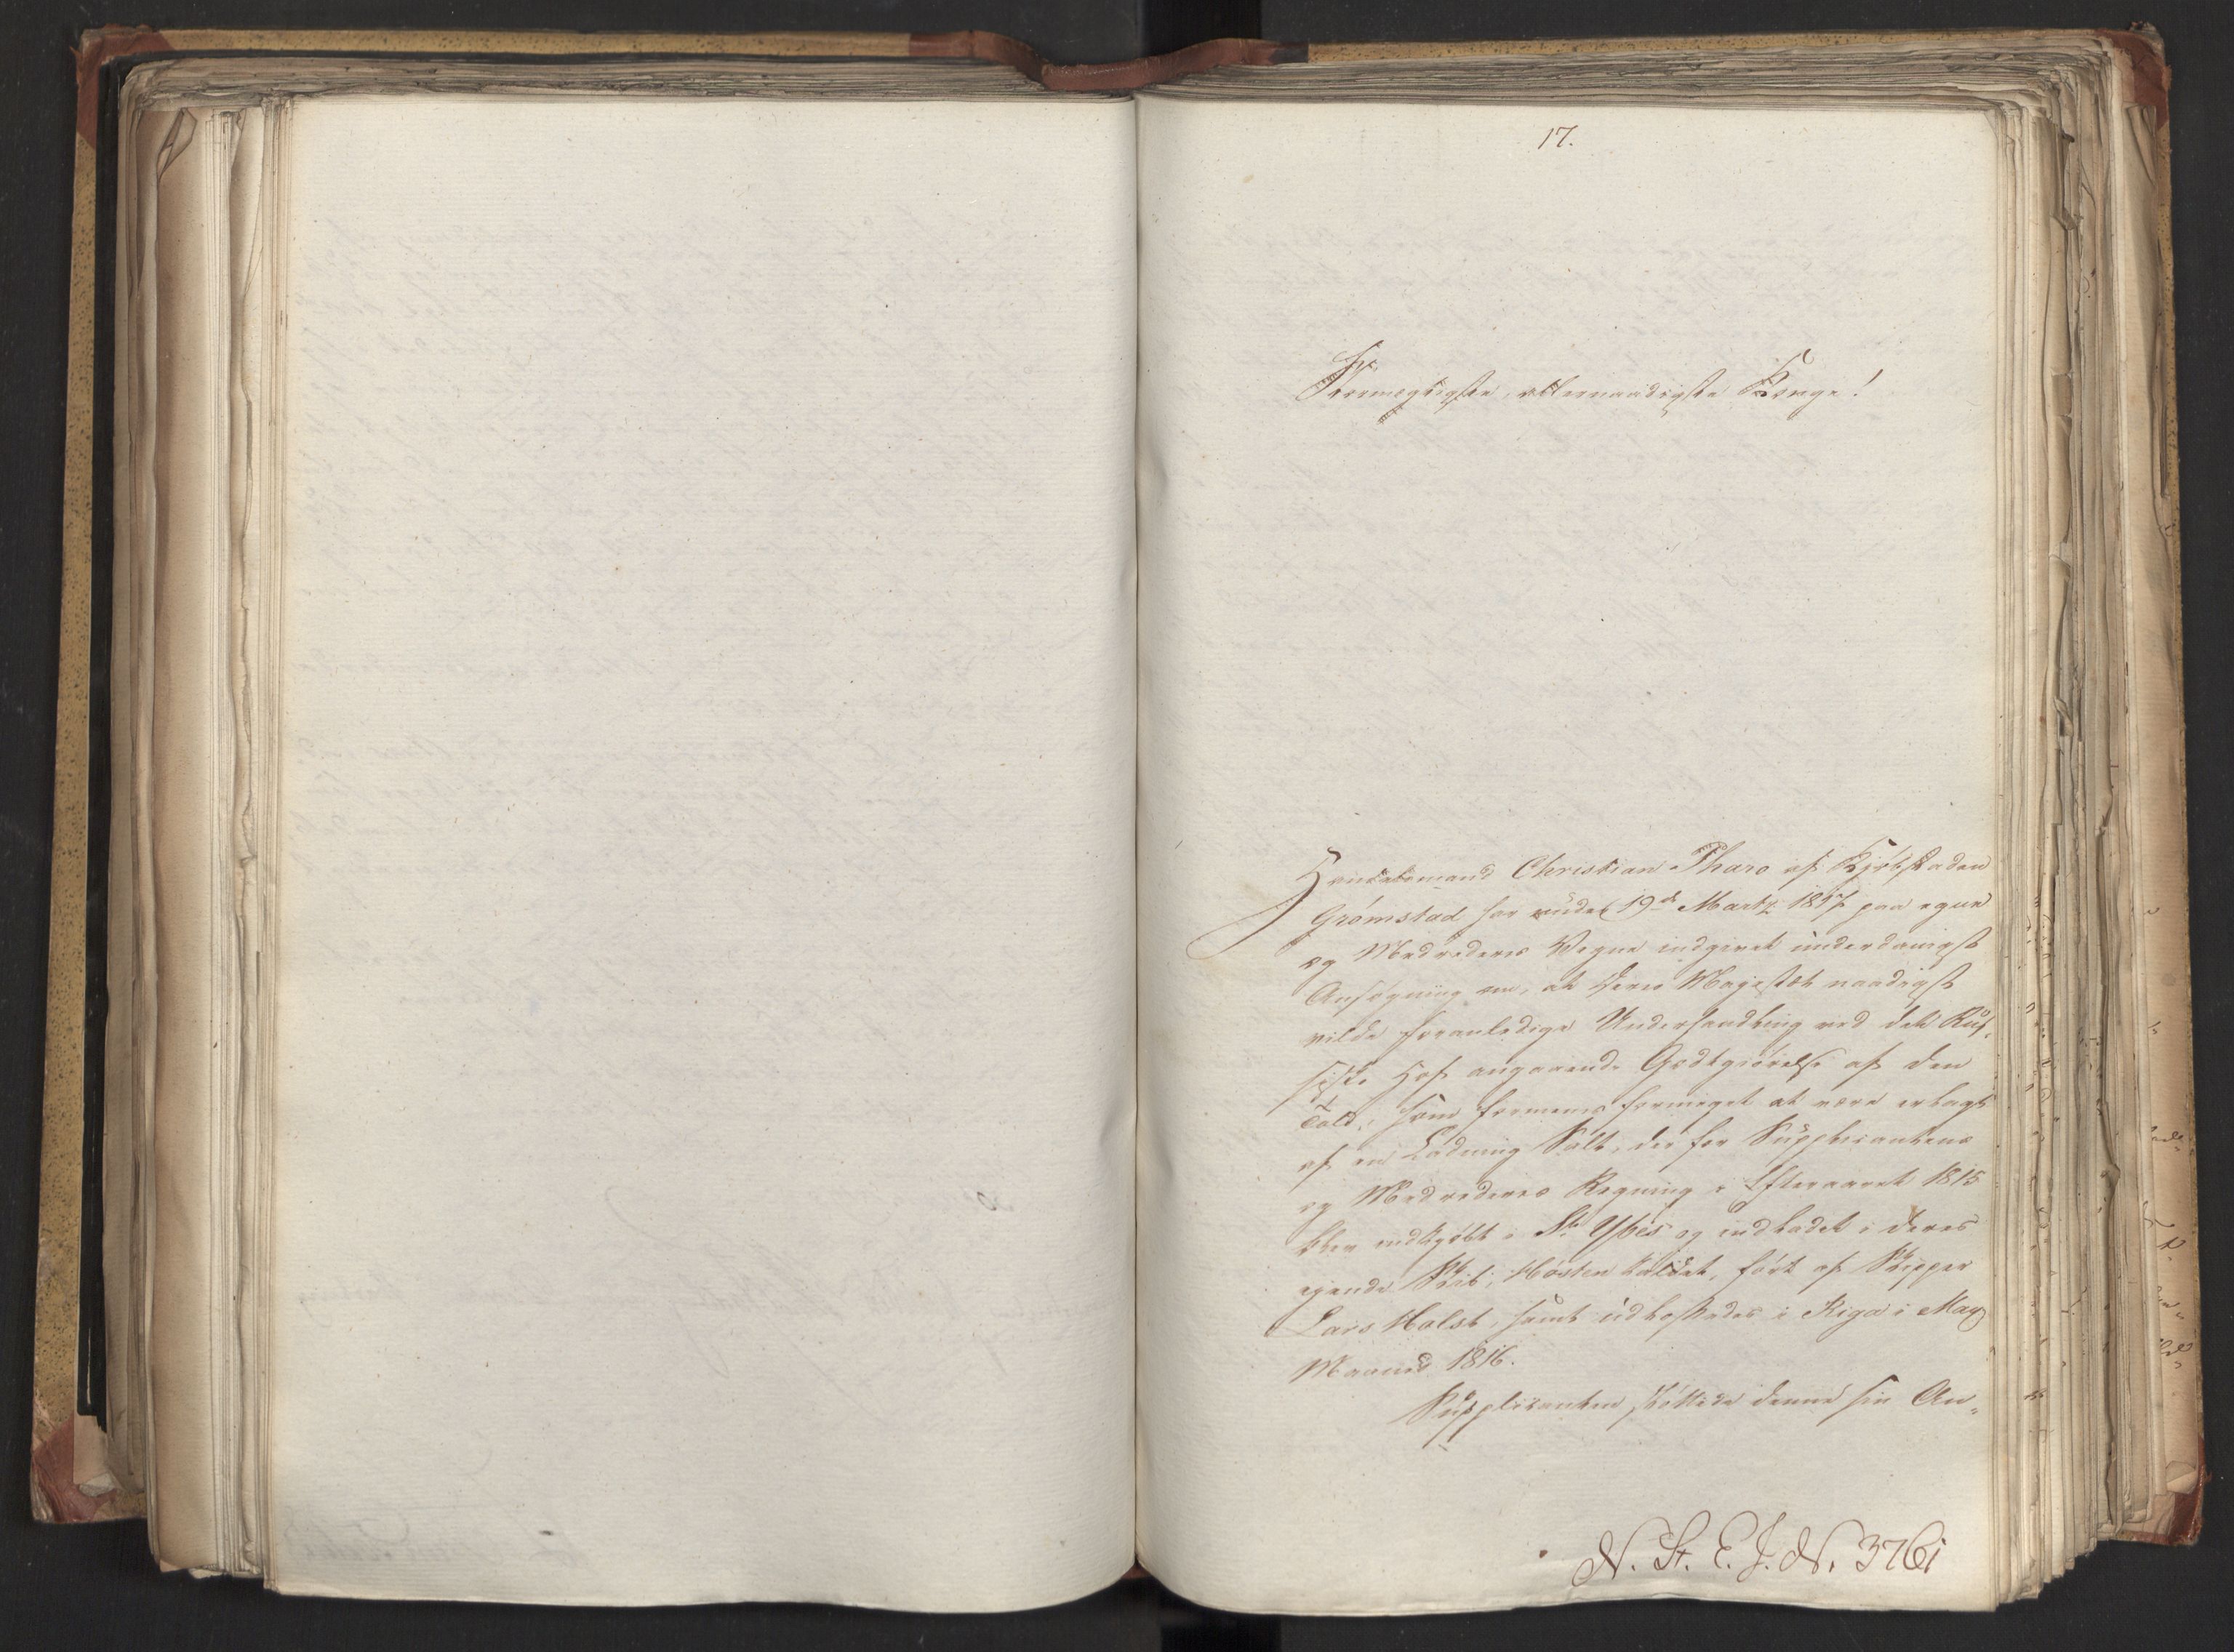 17.
Stormegtigste, allernaadigste Konge!
Handelsmand Christian Tharo af Kjöbstaden
Grömstad har under 19de Martz 1817 paa egne
og Medrederes Vegne indgivet underdanigst
Ansögning om, at Deres Majestæt naadigst
vilde foranledige Underhandling ved det Rus-
siske Hof angaaende Godtgiörelse af den
Told, som formenes formeget at være erlagt
af en Ladning Salt, der for Supplicantens
og Medrederes Regning i Efteraaret 1815
blev indkjöbt i St. Ybes og indladet i deres
egende Skib, Hösten kaldet, fört af Skipper
Lars Holst, samt udlossedes i Riga i May
Maaned 1816.
Supplicanten stöttede denne sin An-
N. St. E. J. N. 3761